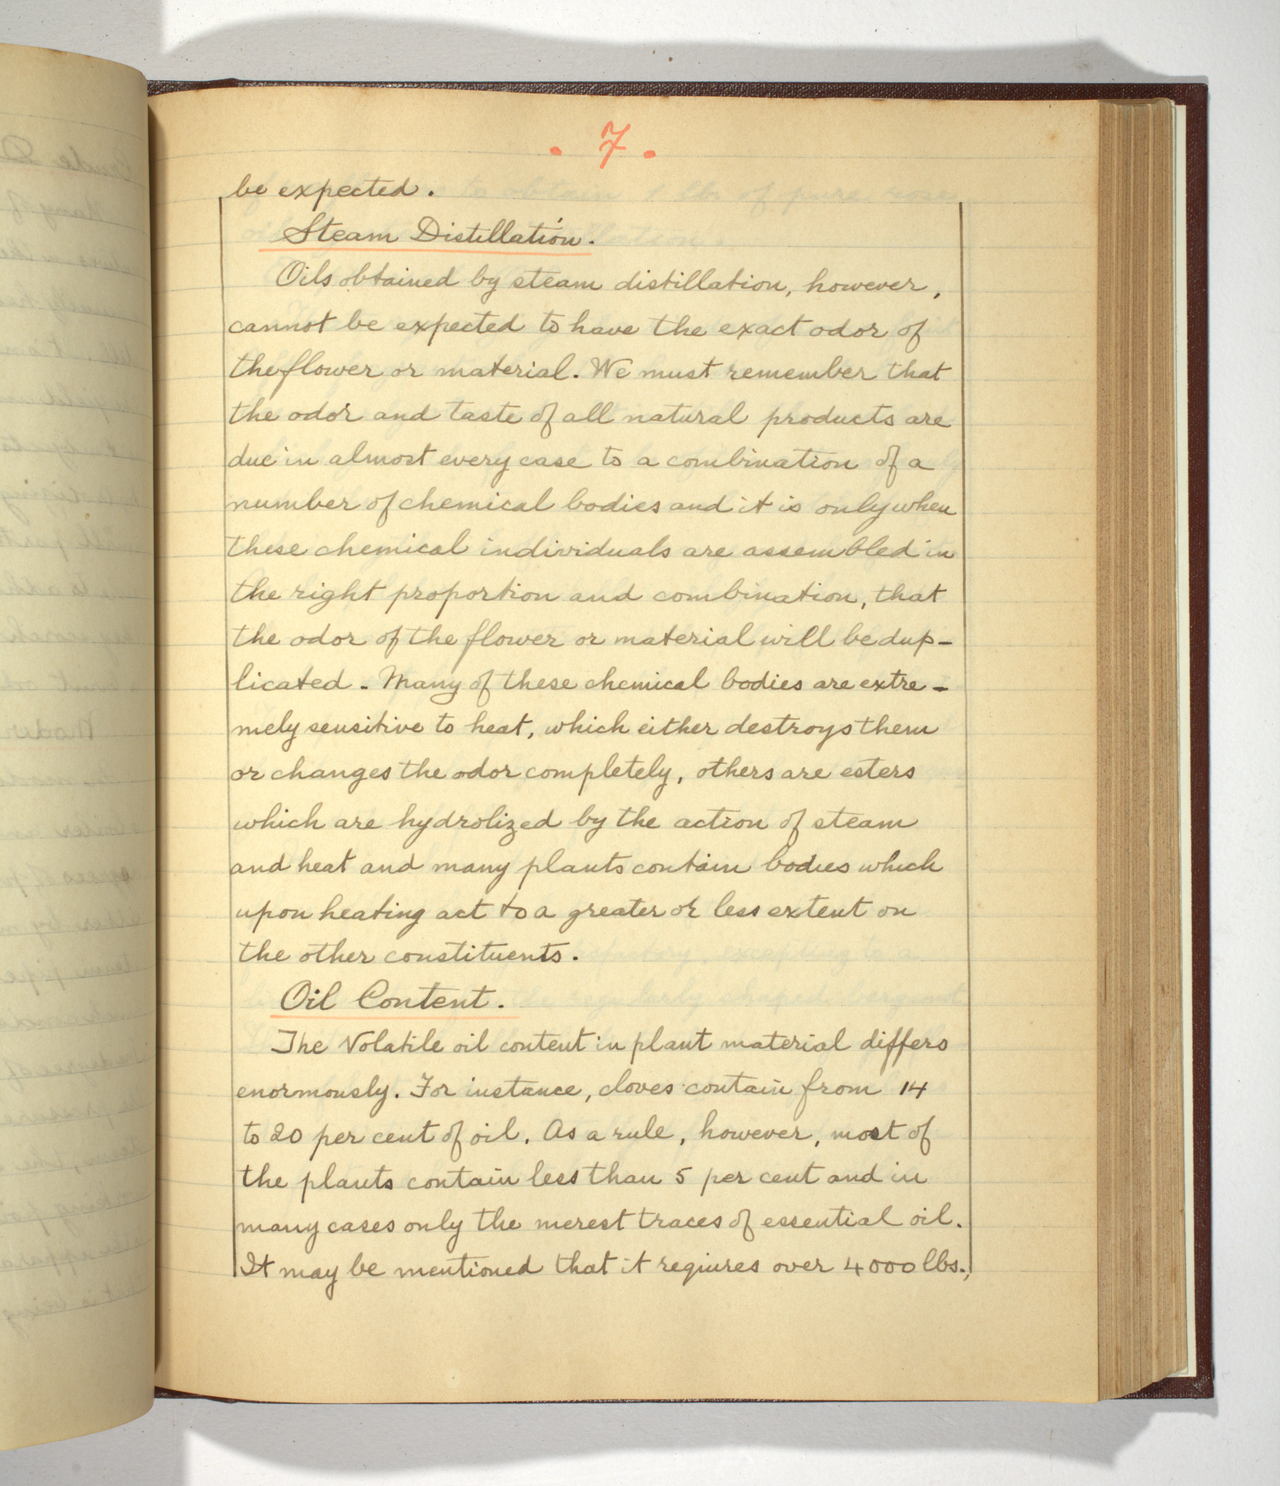 . 7 .
be expected.
Steam Distillation.
Oils obtained by steam distillation, however,
cannot be expected to have the exact odor of
the flower or material. We must remember that
the odor and taste of all natural products are
due in almost every case to a combination of a
number of chemical bodies and it is only when
these chemical individuals are assembled in
the right proportion and combination, that
the odor of the flower or material will be dup-
licated. Many of these chemical bodies are extre-
mely sensitive to heat, which either destroys them
or changes the odor completely, others are esters
which are hydrolized by the action of steam
and heat and many plants contain bodies which
upon heating act to a greater or less extent on
the other constituents.
Oil Content.
The Volatile oil content in plant material differs
enormously. For instance, cloves contain from 14
to 20 per cent of oil. As a rule, however, most of
the plants contain less than 5 per cent and in
many cases only the merest traces of essential oil.
It may be mentioned that it requires over 4000 lbs.,